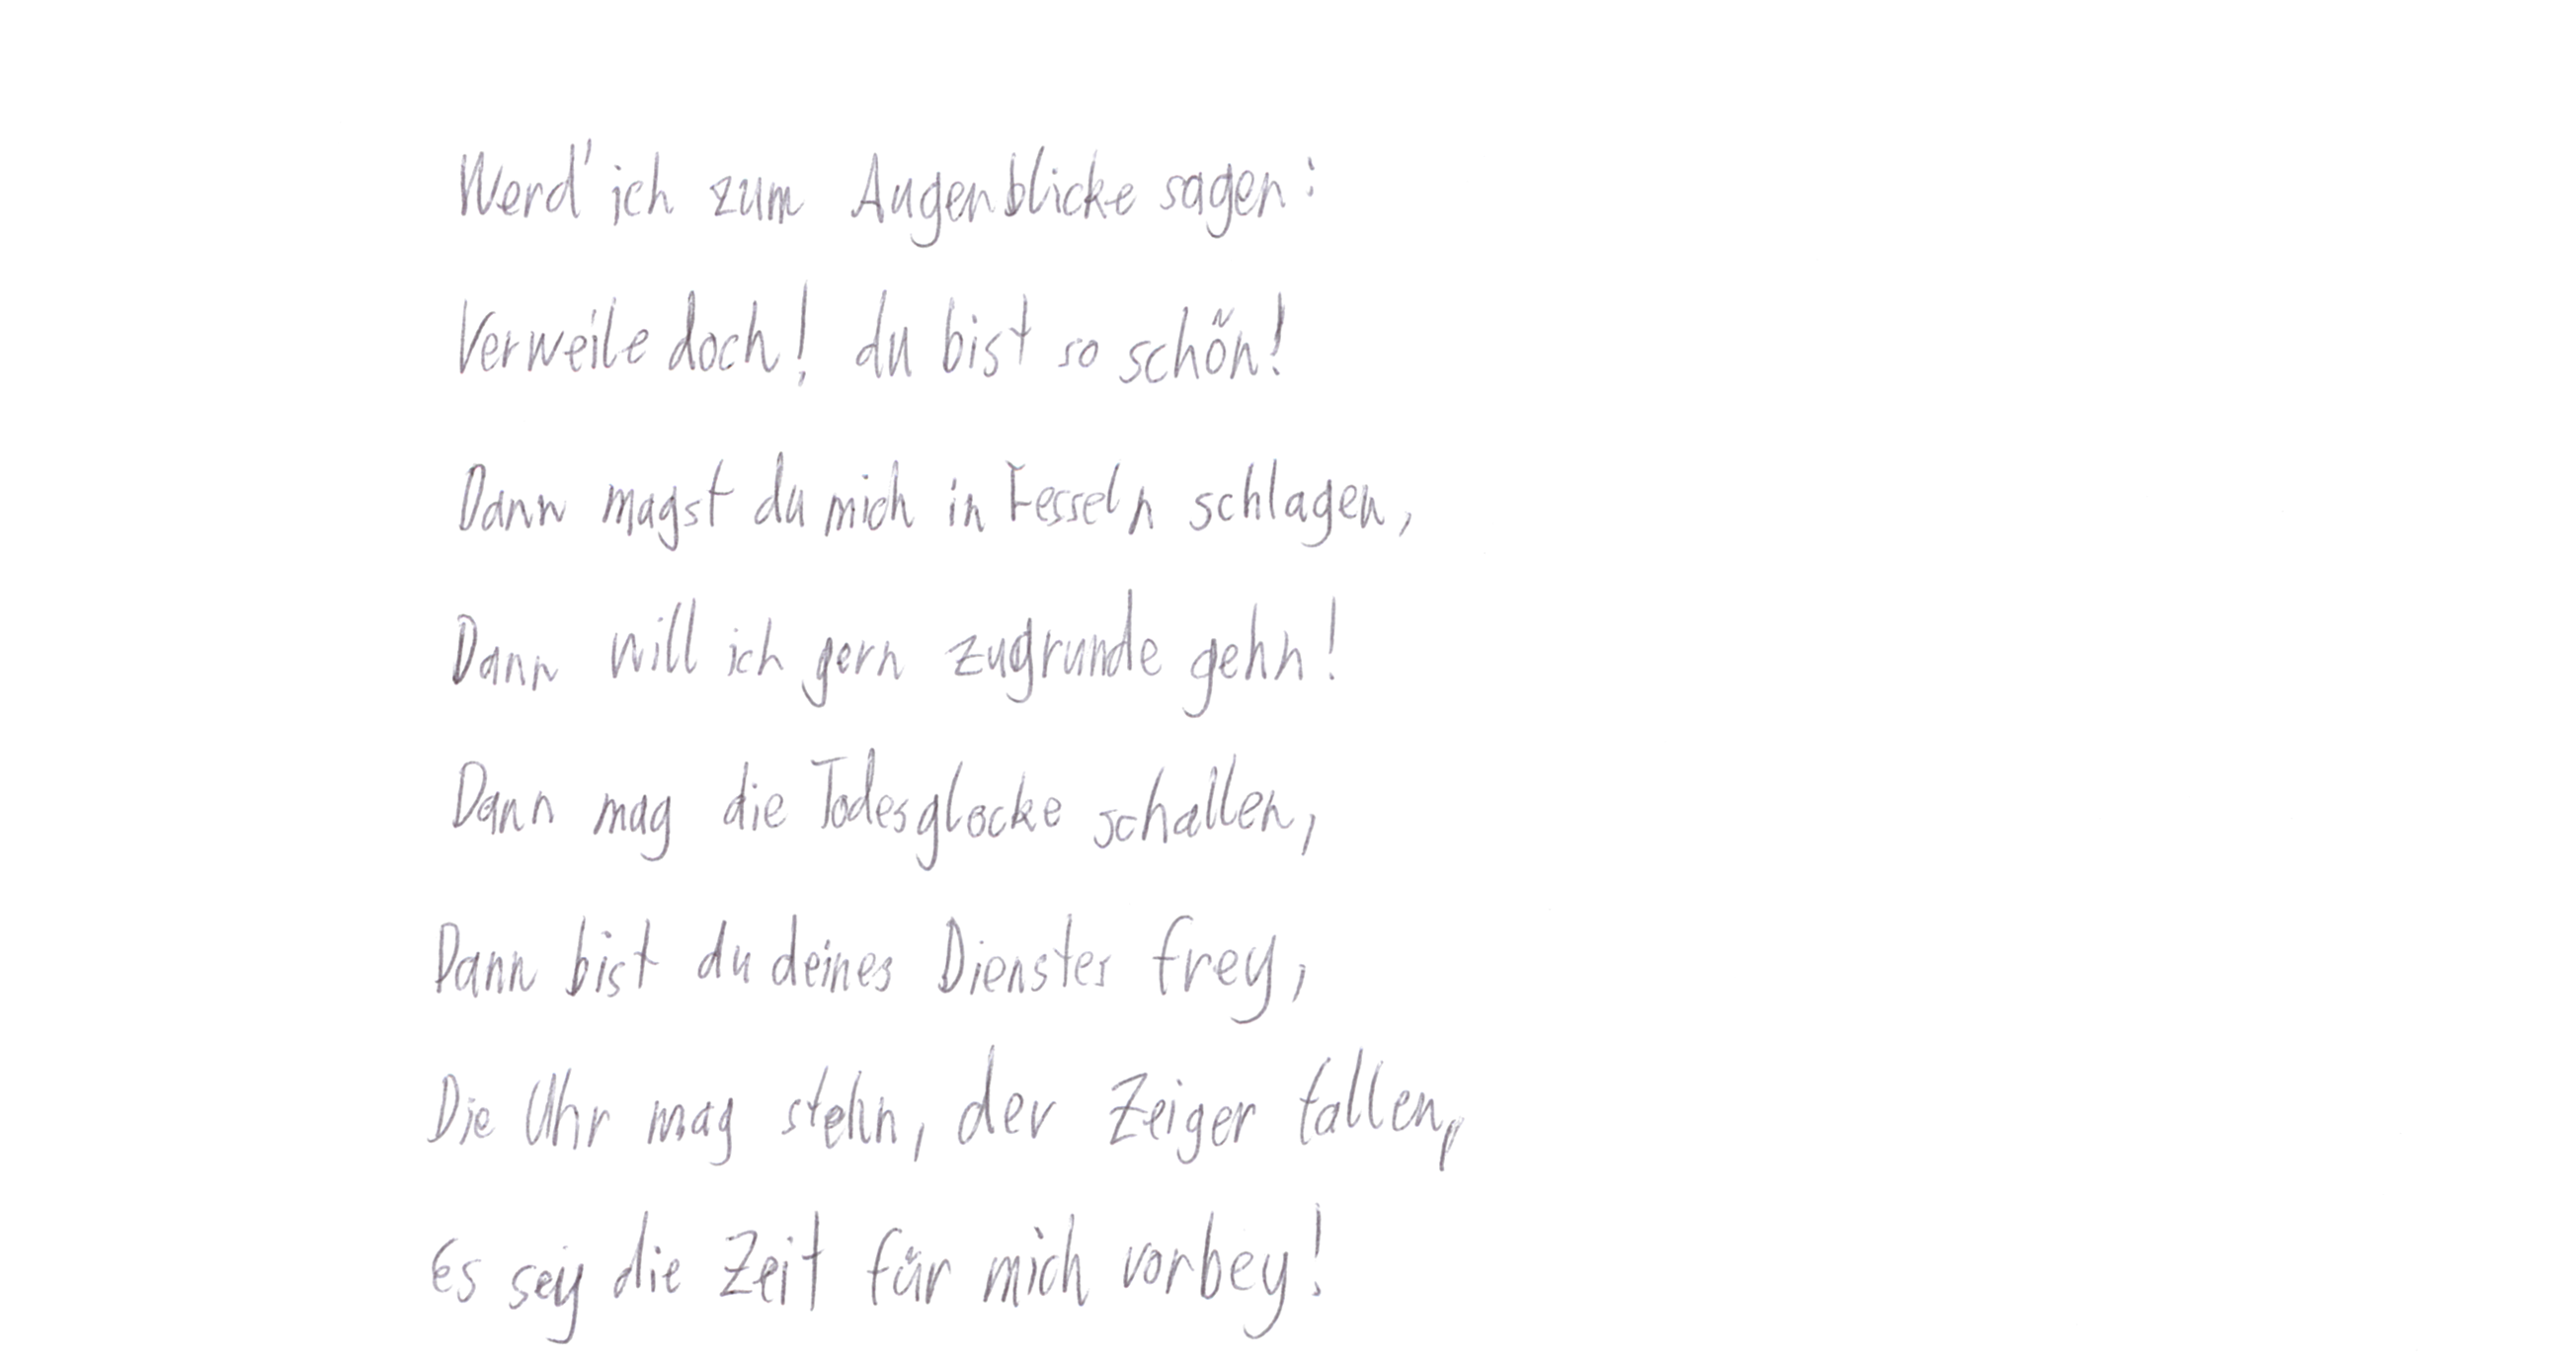 Werd' ich zum Augenblicke sagen:
Verweile doch! du bist so schön!
Dann magst du mich in Fesseln schlagen,
Dann will ich gern zugrunde gehn!
Dann mag die Todesglocke schallen,
Dann bist du deines Dienstes frey,
Die Uhr mag stehn, der Zeiger fallen,
Es sey die Zeit für mich vorbey!